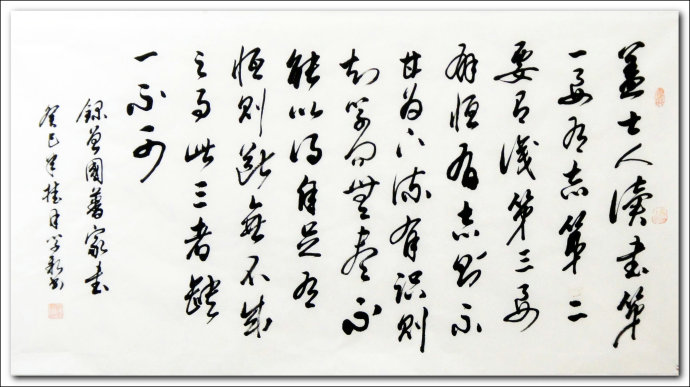 蓋士人讀書第
一要有志第二
要有識第三要
有恒有志則不
甘为下流有识則
知學问無盡不
能以得自足有
恒則斷無不成
之事此三者缺
一不可
錄曾國藩家書
癸巳年桂月